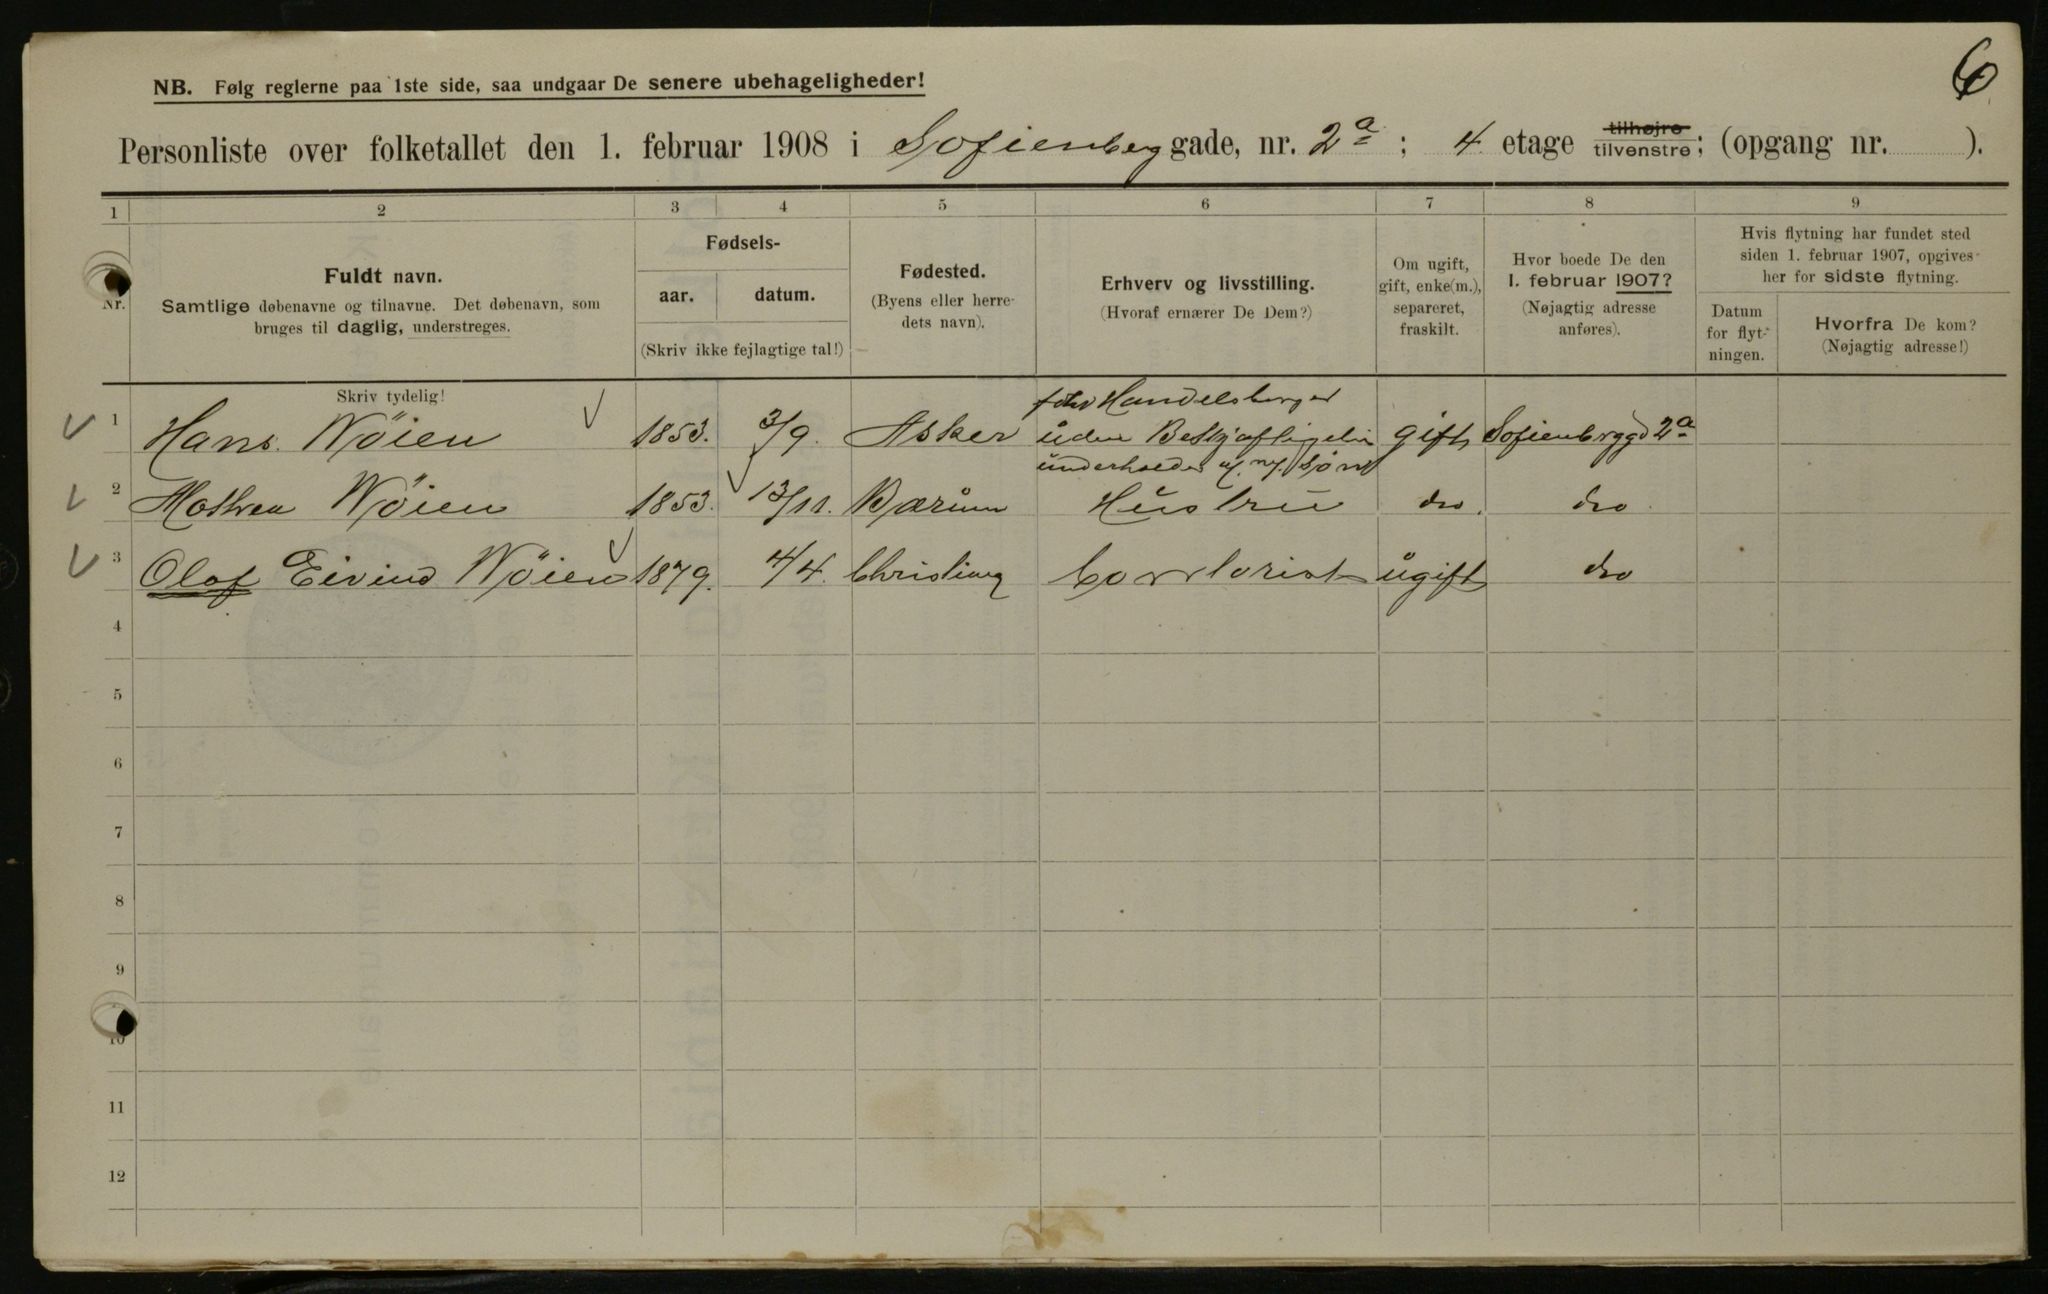 6
NB. Følg reglerne paa 1ste side, saa undgaar De senere ubehageligheder!
Personliste over folketallet den 1. februar 1908 i Sofienberg gade, nr. 2a ; 4 etage tilhøjre tilvenstre ; (opgang nr. ).
1 2 3 4 5 6 7 8 9
Nr.
Fuldt navn.
Samtlige døbenavne og tilnavne. Det døbenavn, som
bruges til daglig, understreges.
Fødsels-
aar. datum.
(Skriv ikke fejlagtige tal!)
Fødested.
(Byens eller herre-
dets navn).
Erhverv og livsstilling.
(Hvoraf ernærer De Dem?)
Om ugift,
gift, enke(m.),
separeret,
fraskilt.
Hvor boede De den
1. februar 1907?
(Nøjagtig adresse
anføres).
Hvis flytning har fundet sted
siden 1. februar 1907, opgives
her for sidste flytning.
Datum
for flyt-
ningen.
Hvorfra De kom?
(Nøjagtig adresse!)
Skriv tydelig!
Handelsborger
1 Hans Wöien 1853. 3/9. Asker uden gift Sofienbggd 2a
underholdes af
2 Wöien 1853. 13/11. Bærum Hustru do. do
3 Olaf Eivind Wöien 1879. 4/4. Christiana Contorist ugift do
4
5
6
7
8
9
10
11
12